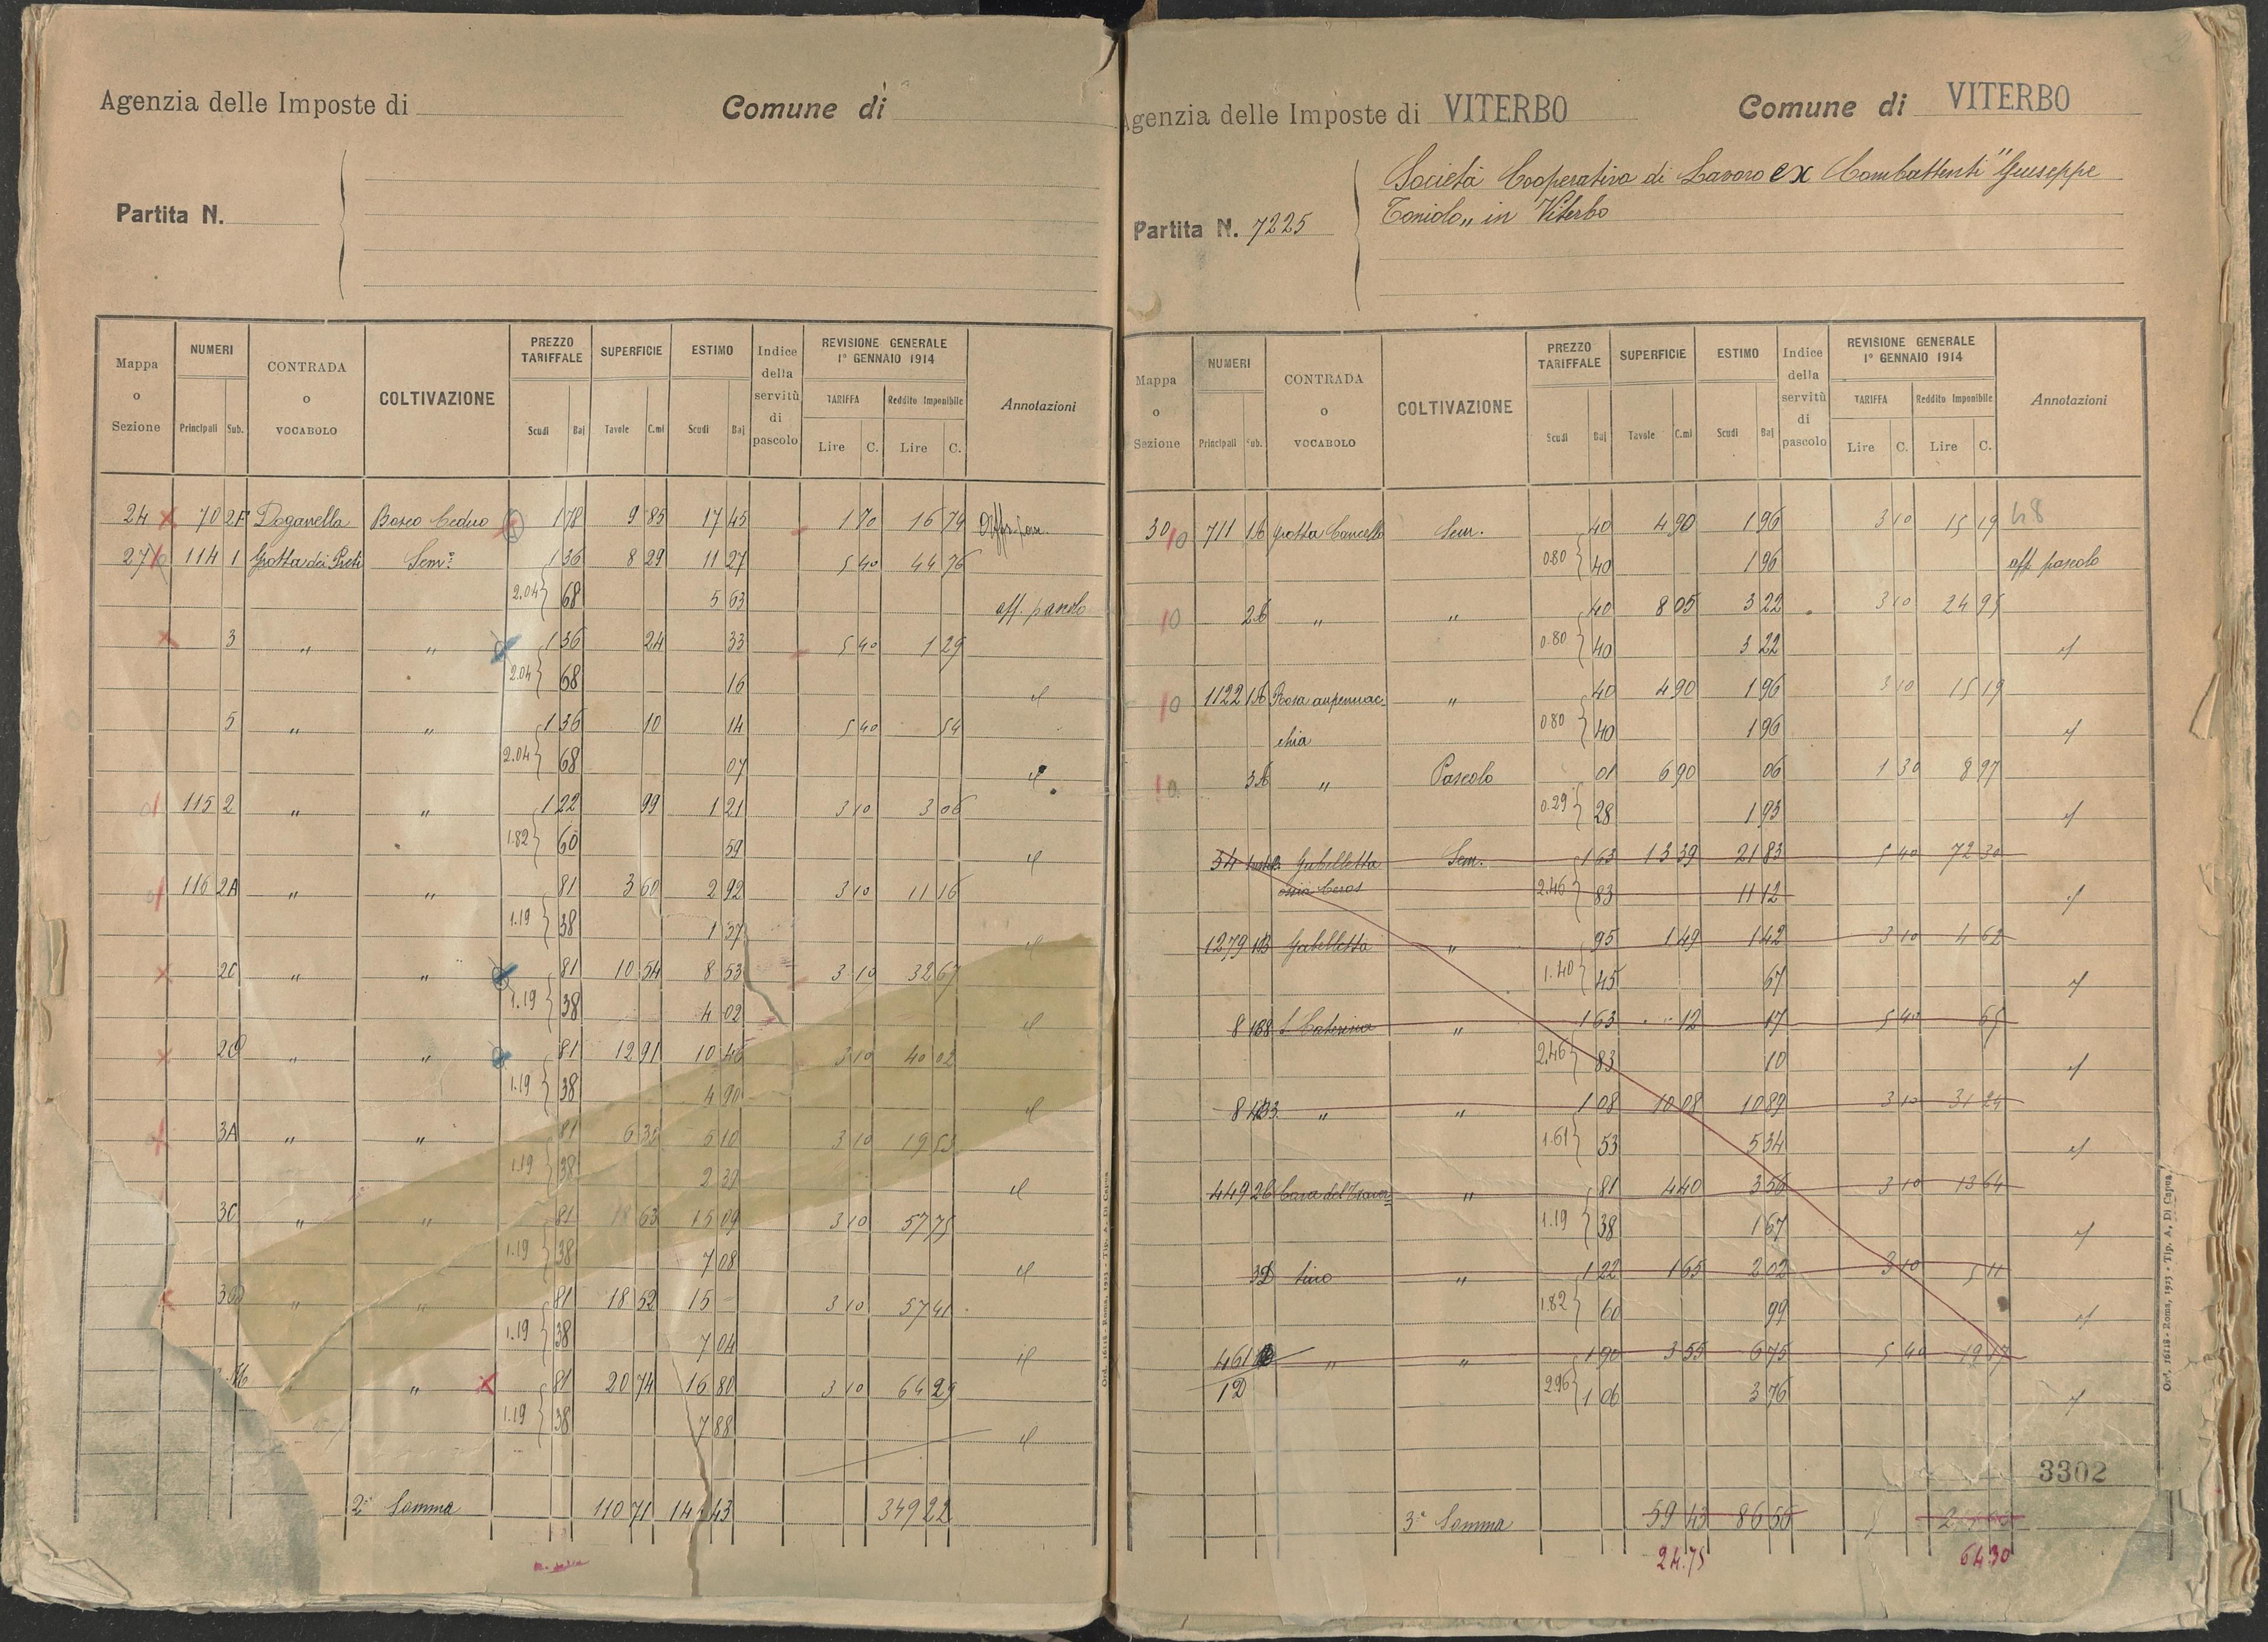 Agenzia delle Imposte di
Comune di
Partita N.
Mappa o Sezione
NUMERI
Principali Sub.
CONTRADA o VOCABOLO
COLTIVAZIONE
PREZZO TARIFFALE
Scudi Baj
SUPERFICIE
Tavole C.mi
ESTIMO
Scudi Baj
Indice della servitù di pascolo
REVISIONE GENERALE 1° GENNAIO 1914
TARIFFA Reddito Imponibile
Lire C. Lire C.
Annotazioni
24 70 2F Doganella Bosco Ceduo 1 78 9 85 17 45 1 70 16 74
27 114 1 Grotta dei Preti Sem. 1 36 8 29 11 27 5 40 44 76
2.04 68 5 63 aff. pascolo
3 " " 1 36 24 33 5 40 1 29
2.04 68 16 id
5 " " 1 36 10 14 5 40 54
2.04 68 07 id
115 2 " " 1 22 99 1 21 3 10 3 06
1.82 60 59 id
116 2A " " 81 3 60 2 92 3 10 11 16
1.19 38 1 37 id
2C " " 81 10 54 8 53 3 10 32 67
1.19 38 4 02 id
" " 81 12 91 10 46 3 10 40 02
1.19 38 4 90 id
3A " " 81 6 10 3 10 19 53
1.19 38 2 39 id
3C " " 81 18 63 15 09 3 10 57 75
1.19 38 7 08 id
" " 81 18 52 15 - 3 10 57 41
1.19 38 7 04 id
" 81 20 74 16 80 3 10 64 29
1.19 38 7 88 id
2ª Somma 110 71 43 349 22
Ord. 16118 - Roma, 1923 - Tip. A. Di Capua
Agenzia delle Imposte di VITERBO
Comune di VITERBO
Partita N. 7225
Società Cooperativa di Lavoro ex Combattenti "Giuseppe
Toniolo" in Viterbo
Mappa o Sezione
NUMERI
Principali Sub.
CONTRADA o VOCABOLO
COLTIVAZIONE
PREZZO TARIFFALE
Scudi Baj
SUPERFICIE
Tavole C.mi
ESTIMO
Scudi Baj
Indice della servitù di pascolo
REVISIONE GENERALE 1° GENNAIO 1914
TARIFFA Reddito Imponibile
Lire C. Lire C.
Annotazioni
30 10 711 Grotta Sem. 40 4 90 1 96 3 10 15 19 48
0.80 40 1 96 aff pascolo
10 " " 40 8 05 3 22 3 10 24 95
0.80 40 3 22 id
10 1122 Rosa " 40 4 90 1 96 3 10 15 19
chia 0.80 40 1 96 id
10 " Pascolo 01 6 90 06 1 30 8 97
0.29 28 1 93 id
54 Gabelletta Sem. 1 63 13 39 21 83 5 40 72 30
ossia Ceros 2.46 83 11 12 id
1279 Gabelletta " 95 1 49 1 42 3 10 4 62
1.40 45 67 id
8 S. Caterina " 1 63 12 17 5 40 65
2.46 83 10 id
8 " " 1 08 10 08 10 89 3 10 31 24
1.61 53 5 34 id
449 Cava del " 81 4 40 3 56 3 10 13 64
1.19 38 1 67 id
" 1 22 1 65 2 02 3 10 5 11
1.82 60 99 id
461 " " 1 90 3 55 6 75 5 40 19 17
1D 2.96 1 06 3 76 id
3302
3ª Somma 59 43 86 56
24.75 64 30
Ord. 16118 - Roma, 1923 - Tip. A. Di Capua